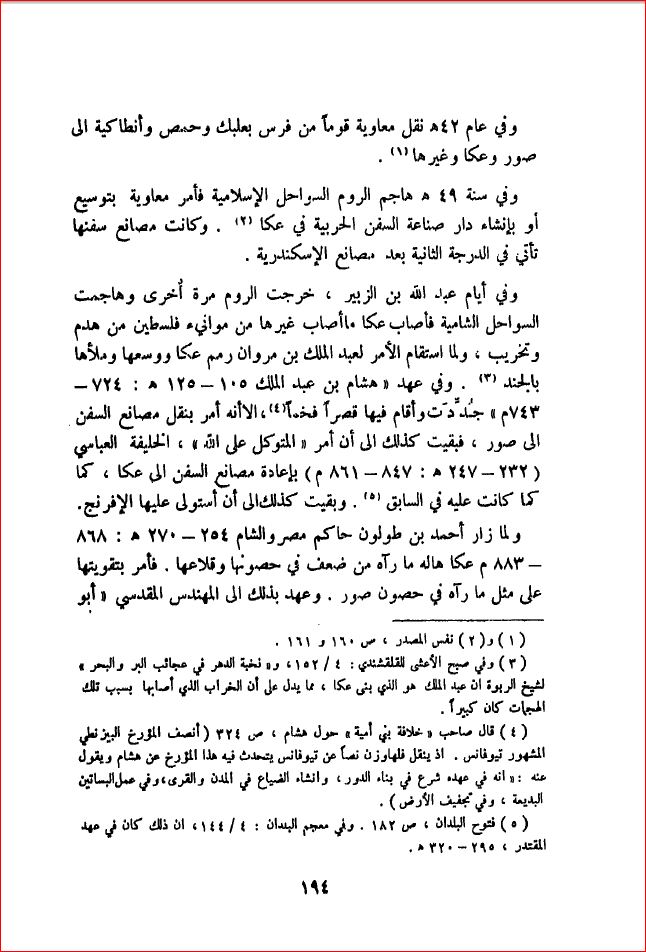 وفي عام ٤٢ﻫ نقل معاوية قوماً من فرس بعلبك وحمص وأنطاكية الى
صور وعكا وغيرها (١) .
وفي سنة ٤٩ ﻫ هاجم الروم السواحل الإسلامية فأمر معاوية بتوسيع
أو بإنشاء دار صناعة السفن الحربية في عكا (٢) . وكانت مصانع سفنها
تأتي في الدرجة الثانية بعد مصانع الإسكندرية .
وفي أيام عبد الله بن الزبير ، خرجت الروم مرة أُخرى وهاجمت
السواحل الشامية فأصاب عكا ماأصاب غيرها من موانيء فلسطين من هدم
وتخريب ، ولما استقام الأمر لعبد الملك بن مروان رمم عكا ووسعها وملأها
بالجند (٣) . وفي عهد « هشام بن عبد الملك ١٠٥ – ١٢٥ ﻫ : ٧٢٤ –
٧٤٣م » جُدِّدَت وأقام فيها قصراً فخماً(٤)،الاأنه أمر بنقل مصانع السفن
الى صور ، فبقيت كذلك الى أن أمر « المتوكل على الله » ، الخليفة العباسي
( ٢٣٢ – ٢٤٧ ﻫ : ٨٤٧ – ٨٦١ م ) بإعادة مصانع السفن الى عكا ، كما
كما كانت عليه في السابق (٥) . وبقيت كذلك الى أن أستولى عليها الإفرنج.
ولما زار أحمد بن طولون حاكم مصر والشام ٢٥٤ – ٢٧٠ ﻫ : ٨٦٨
– ٨٨٣ م عكا هاله ما رآه من ضعف في حصونها وقلاعها . فأمر بتقويتها
على مثل ما رآه في حصون صور . وعهد بذلك الى المهندس المقدسي « أبو
( ١ ) و( ٢ ) نفس المصدر ، ص ١٦٠ و ١٦١ .
( ٣ ) وفي صبح الأعشى للقلقشندي : ٤ / ١٥٢ ، و« نخبة الدهر في عجائب البر والبحر »
لشيخ الربوة ان عبد الملك هو الذي بنى عكا ، مما يدل على أن الخراب الذي أصابها بسبب تلك
الهجمات كان كبيراً .
( ٤ ) قال صاحب « خلافة بني أمية » حول هشام ، ص ٣٢٤ ( أنصف المؤرخ البيزنطي
المشهور تيوفانس . اذ ينقل فلهاوزن نصاً عن تيوفانس يتحدث فيه هذا المؤرخ عن هشام ويقول
عنه : « انه في عهده شرع في بناء الدور ، وانشاء الضياع في المدن والقرى،وفي عمل البساتين
البديعة ، وفي تجفيف الأرض ) .
( ٥ ) فتوح البلدان ، ص ١٨٢ . وفي معجم البلدان : ٤ / ١٤٤ ، ان ذلك كان في عهد
المقتدر ، ٢٩٥ – ٣٢٠ ﻫ .
١٩٤